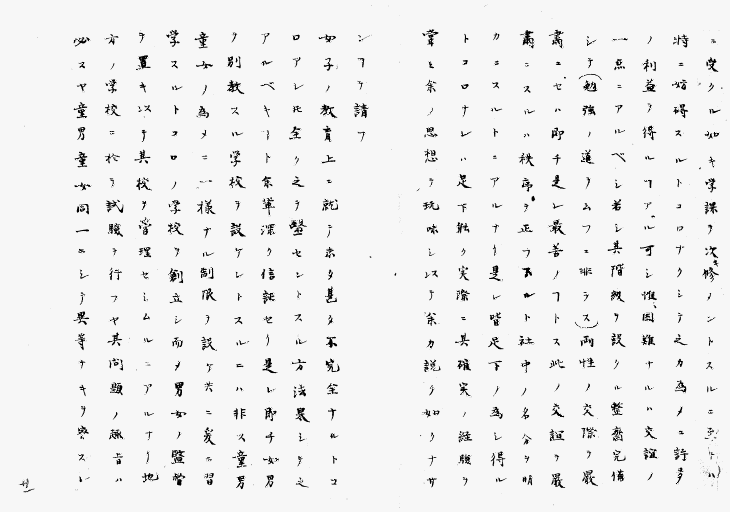 ニ受クル如キ学課ヲ次修ノントスルニ至トハ
特ニ妨碍スルトコロナクシテ之カ為メニ許多
ノ利益ヲ得ルヿアル可シ惟、困難ナルハ交誼ノ
一点ニアルベシ若シ其階級ヲ設クル整斎完備
シテ(勉強ノ道ヲムフニ非ラス)両性ノ交際ヲ厳
粛ニセハ即チ是レ最善ノヿトス此ノ交誼ヲ厳
粛ニスルハ秩序ヲ正フスルト社中ノ名分ヲ明
カニスルトニアルナリ是レ皆足下ノ為シ得ル
トコロナレハ足下触ク実際ニ其確実ノ経験ヲ
嘗シ余ノ思想ヲ玩味シンステ余カ説ク如クナサ
ンヿヲ請フ
女子ノ教育上ニ就テ未タ甚タ不完全ナルトコ
ロアレ𪜈全ク之ヲ医セントスル方法畧シテ之
アルベキヿト余輩深ク信証セリ是レ即チ女男
ヲ別教スル学校ヲ設ケントスルニハ非ス童男
童女ノ為メニ一様ナル制限ヲ設ケ共ニ爰ニ習
学スルトコロノ学校ヲ創立シ而メ男女ノ監督
ヲ置キンステ其校ヲ管理セシムルニアルナリ地
方ノ学校ニ於テ試験ヲ行フヤ其問題ノ趣旨ハ
必スヤ童男童女同一ニシテ異等ナキヲ要スレ